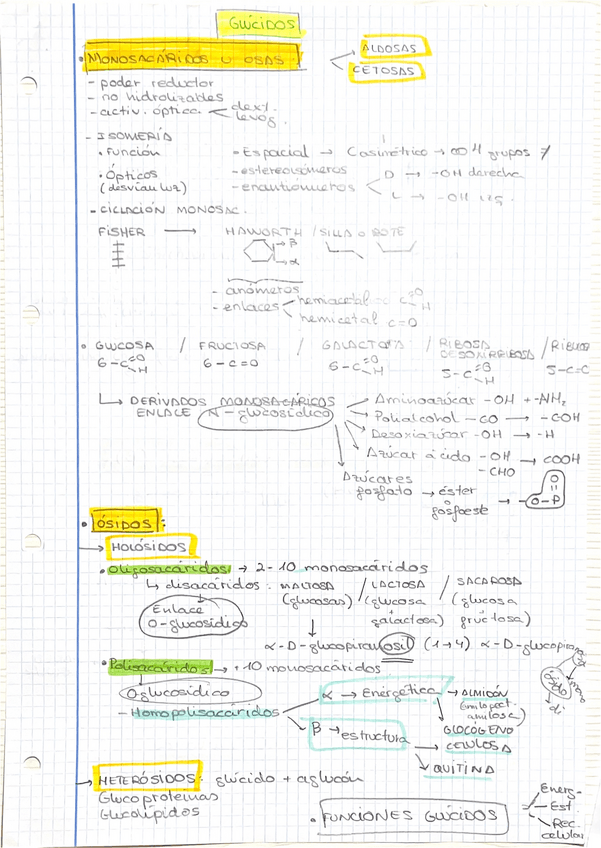 GLÚCIDOS
• MONOSACÁRIDOS U OSAS
ALDOSAS
CETOSAS
- poder reductor
- no hidrolizables
- activ. óptica
dext.
levóg.
- ISOMERÍA
• Función
• Ópticos
(desvían luz)
- Espacial → C asimétrico → 4 grupos ≠
- estereoisómeros
- enantiómeros
D → -OH derecha
L → -OH izq.
- CICLACIÓN MONOSAC.
FISHER → HAWORTH / SILLA O BOTE
β
α
- anómeros
- enlaces
hemiacetal = C=O H
hemicetal C=O
• GLUCOSA / FRUCTOSA / GALACTOSA / RIBOSA DESOXIRRIBOSA /
6-C=O -H 6-C=O 6-C=O -H 5-C=O -H 5-C=C
↳ DERIVADOS MONOSACÁRICOS
ENLACE N-glucosídico
Aminoazúcar -OH + -NH₂
Polialcohol -CO → -COH
Desoxiazúcar -OH → -H
Azúcar ácido -OH -CHO → COOH
Azúcares
fosfato → éster
-O-P
O
• ÓSIDOS:
→ HOLÓSIDOS
• Oligosacáridos → 2-10 monosacáridos
↳ disacáridos: MALTOSA / LACTOSA / SACAROSA
(glucosas) (glucosa (glucosa
galactosa) fructosa)
Enlace
O-glucosídico
α-D-glucopiranosil (1→4) α-D-glucopirano
• Polisacáridos → +10 monosacáridos
O-glucosídico
- Homopolisacáridos
α → Energética → ALMIDÓN
amilosa)
GLUCÓGENO
β → estructura
CELULOSA
QUITINA
ósido
di
→ HETERÓSIDOS: glúcido + aglucón
Glucoproteínas
Glucolípidos
• FUNCIONES GLÚCIDOS
Energ-
Est.
Rec.
celular